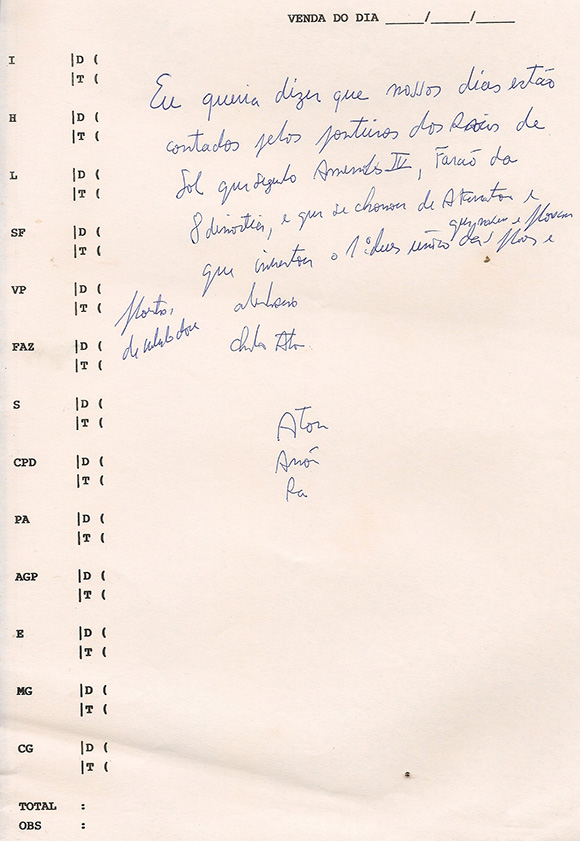 VENDA DO DIA _____/_____/_____
I |D (
|T (
H |D (
|T (
L |D (
|T (
SF |D (
|T (
VP |D (
|T (
FAZ |D (
|T (
S |D (
|T (
CPD |D (
|T (
PA |D (
|T (
AGP |D (
|T (
E |D (
|T (
MG |D (
|T (
CG |D (
|T (
TOTAL :
OBS :
Eu queria dizer que nossos dias estão
contados pelos ponteiros dos Raios de
Sol que segundo Amenofis IV, Faraó da
8 dinastia, e que se chamou de Akenaton e
que inventou o 1º deus único das flores e
Aton
Amón
Ra